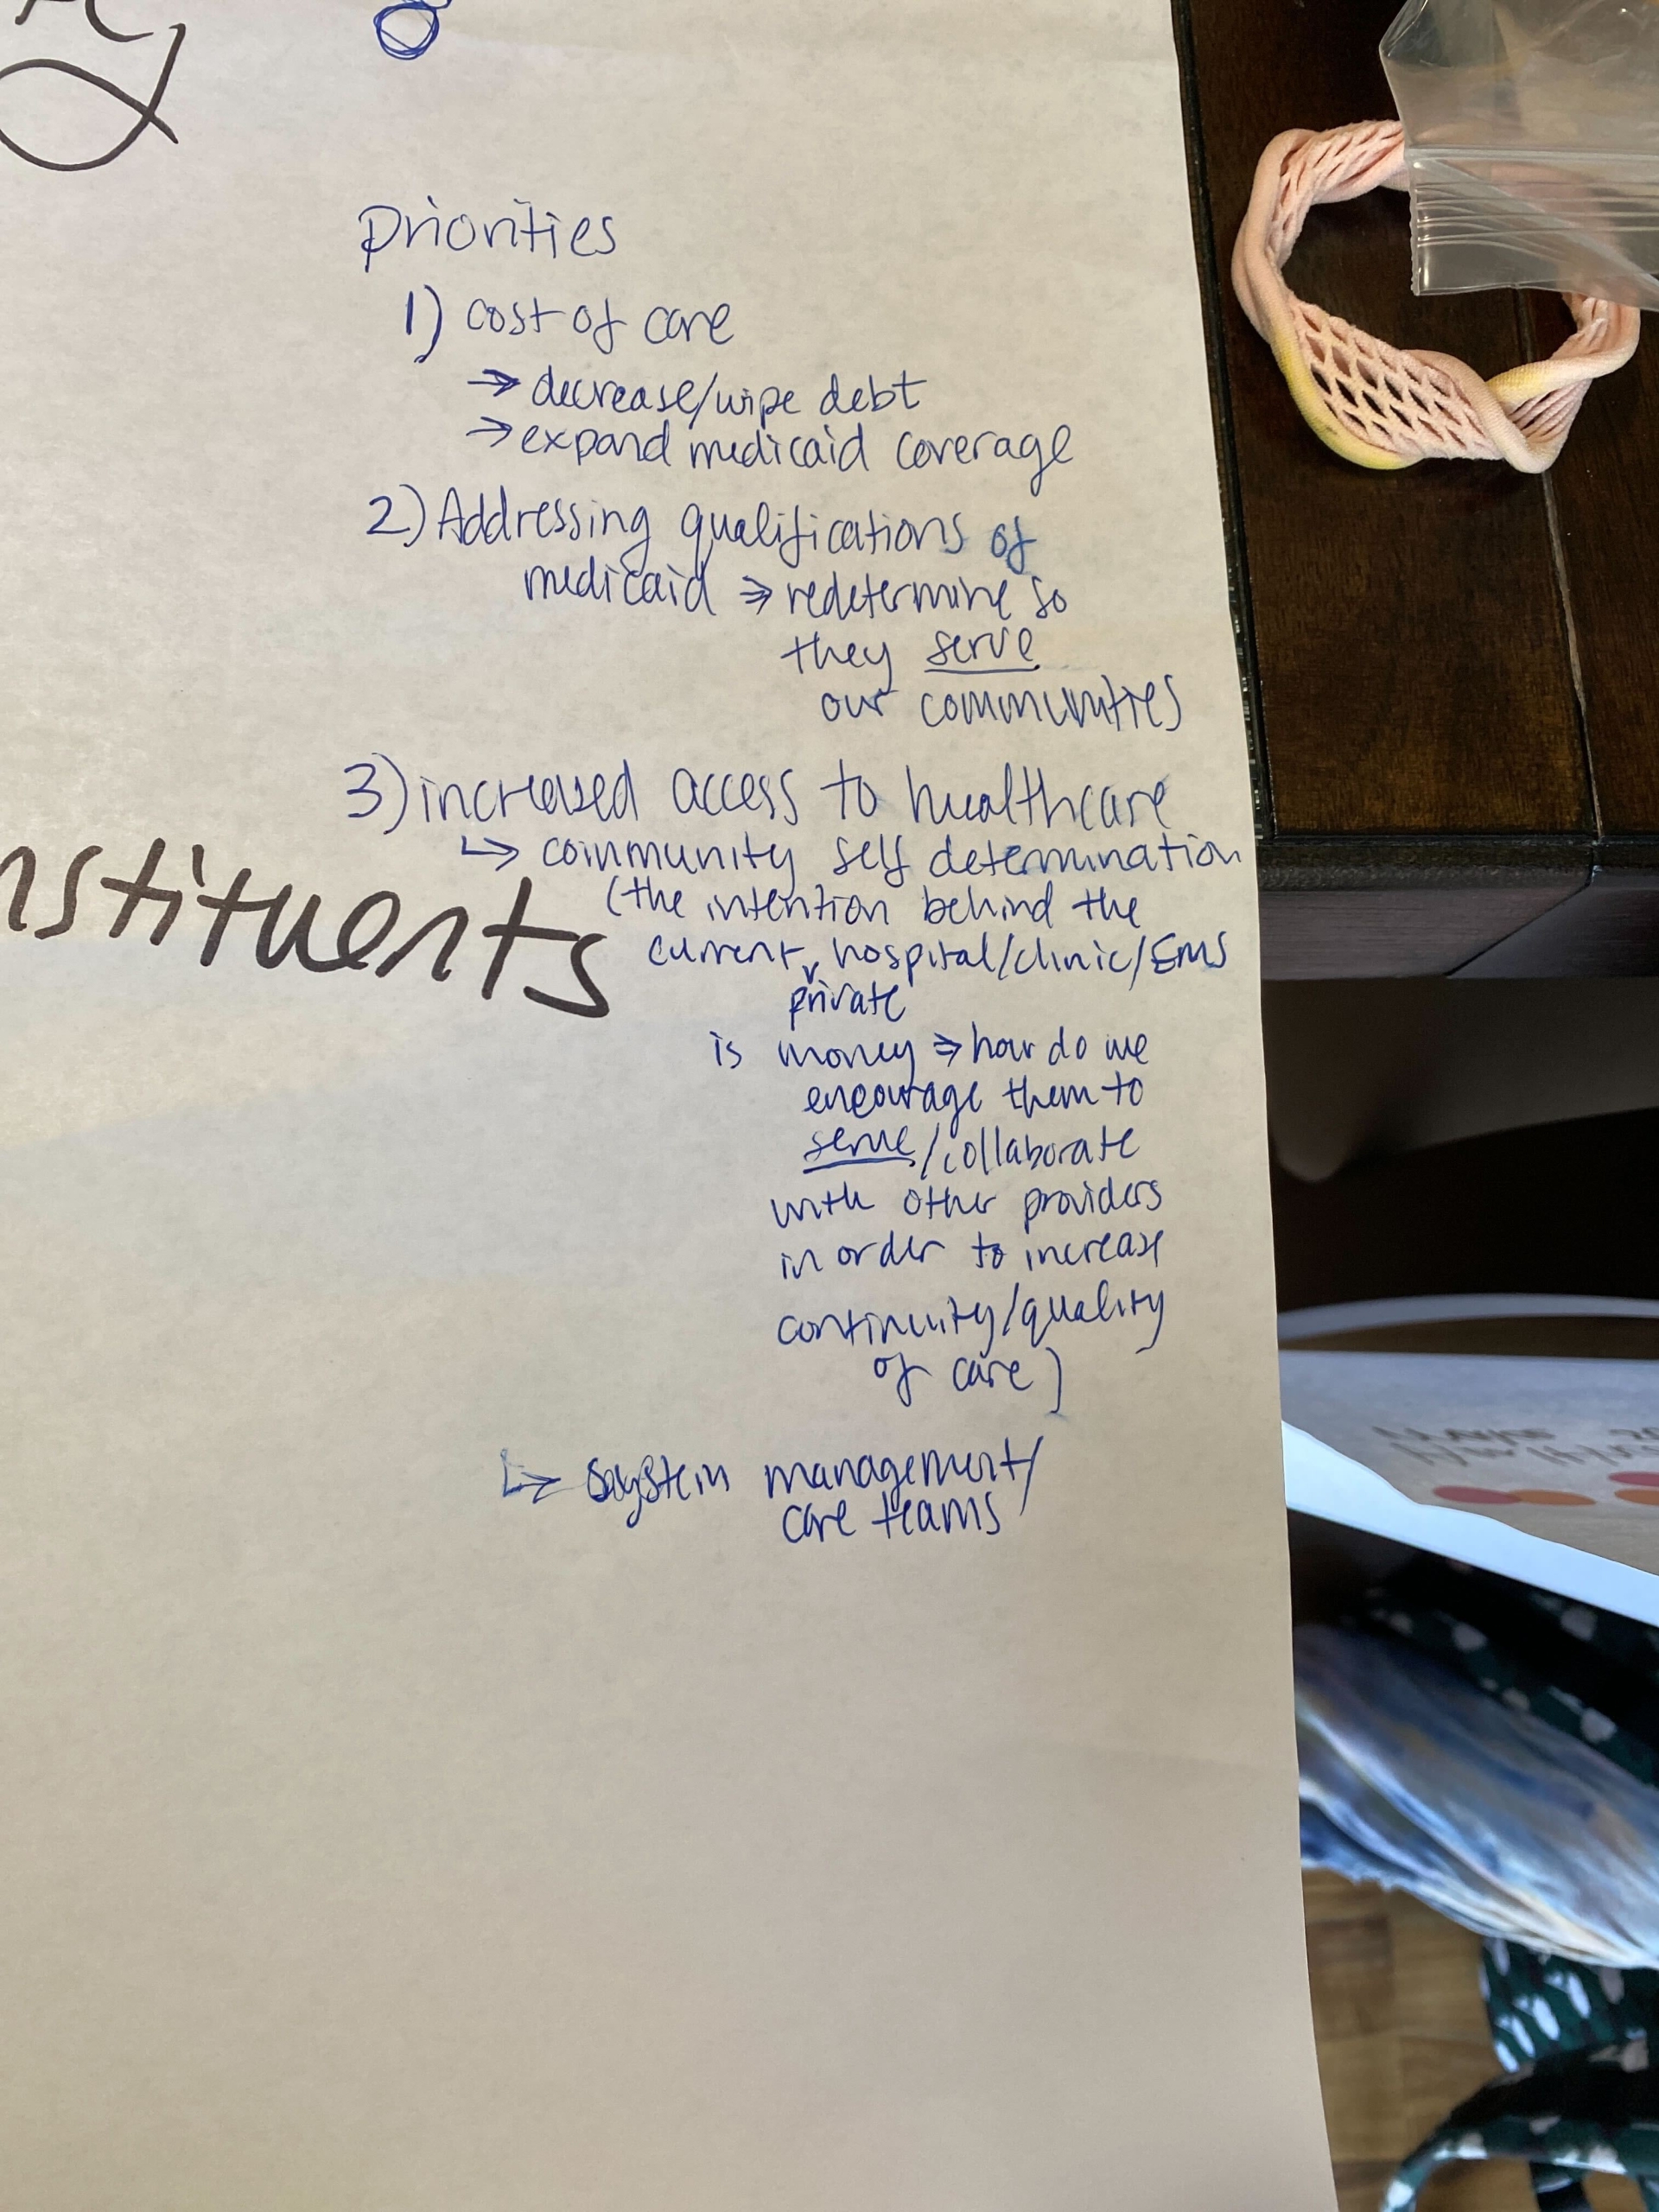 priorities
1) cost of care
→ decrease/wipe debt
→ expand medicaid coverage
2) Addressing qualifications of
medicaid ⇒ redetermine so
they serve
our communities
3) increased access to healthcare
↳ community self determination
(the intention behind the
current hospital/clinic/EMS
private
is money ⇒ how do we
encourage them to
serve/collaborate
with other providers
in order to increase
continuity/quality
of care)
↳ system management/
care teams
nstituents